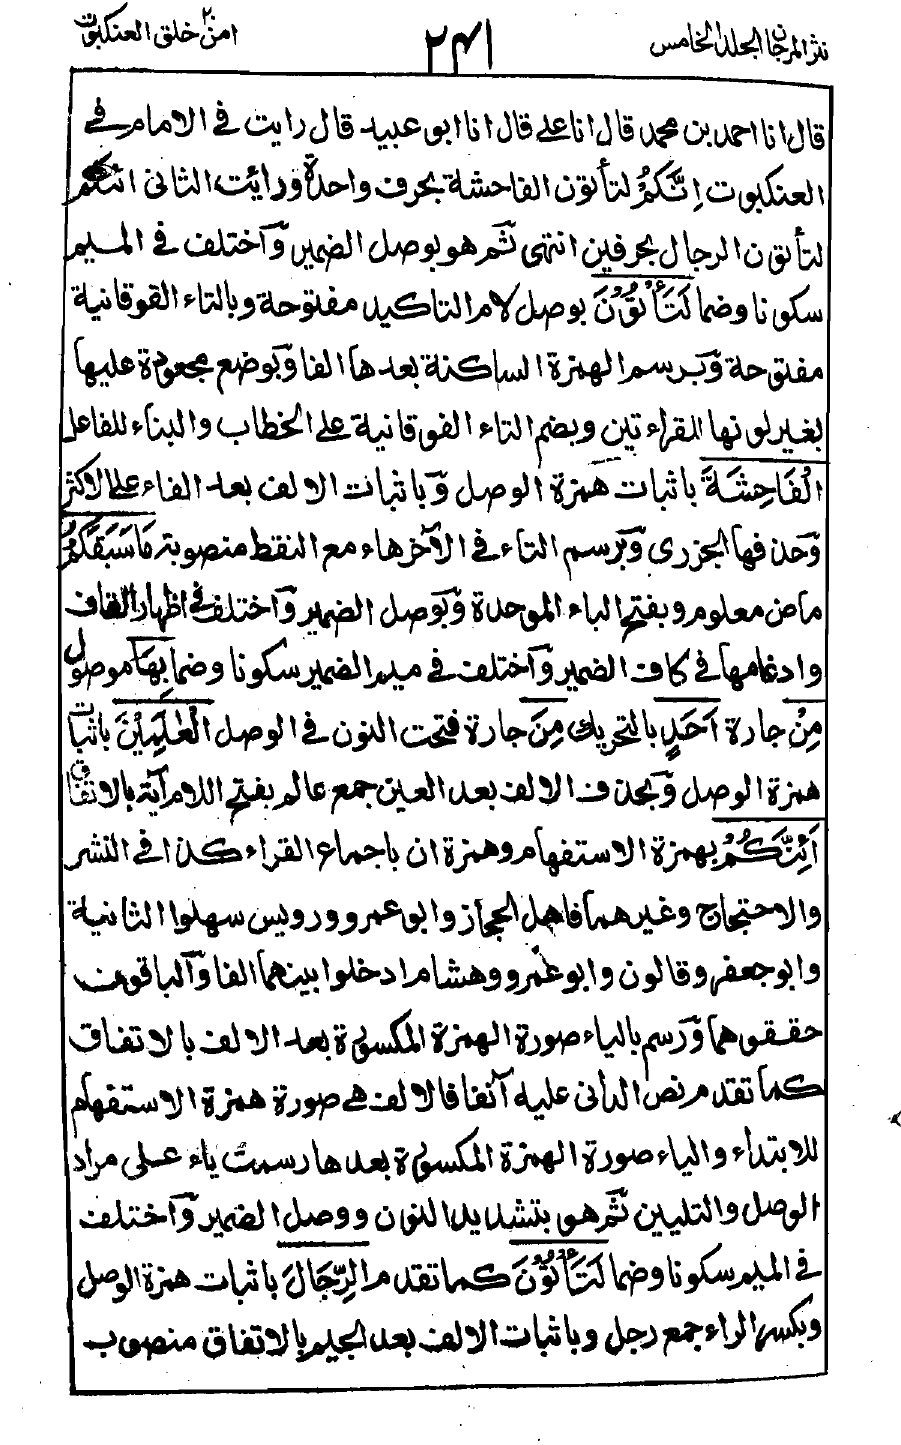 نثر المرجان الجلد الخامس
٢٤١
امن٢٠ خلق العنكبوت
قال انا احمد بن محمد قال انا علے قال انا ابو عبيد قال رايت فے الامام فے
العنكبوت اِنَّكُمْ لتأتون الفاحشة بحرف واحدة ورائت الثانى ائنكم
لتأتون الرجال بحرفين انتهى ثم هو بوصل الضمير وآختلف فے الميم
سكونا وضما لَتَأْتُوْنَ بوصل لام التاكيد مفتوحة وبالتاء الفوقانية
مفتوحة وَبرسم الهمزة الساكنة بعدها الفا وَبوضع مجعودة عليها
بغير لونها للقراءتين وبضم التاء الفوقانية علے الخطاب والبناء للفاعل
الْفَاحِشَةَ باثبات همزة الوصل وَباثبات الالف بعد الفاء علے الاكثر
وَحذفها الجزرى وَبرسم التاء فے الآخر هاء مع النقط منصوبة مَا سَبَقَكُمْ
ماض معلوم وبفتح الباء الموحدة وَبوصل الضمير وآختلف فے اظهار القاف
وادغامها فے كاف الضمير وآختلف فے ميم الضمير سكونا وضما بِهَا موصول
مِنْ جارة اَحَدٍ بالتحريك مِنَ جارة فتحت النون فے الوصل الْعٰلَمِيْنَ باثبات
همزة الوصل وَبحذف الالف بعد العين جمع عالم بفتح اللام آية بالاتفاق
اَئِنَّكُمْ بهمزة الاستفهام وهمزة ان باجماع القراء كذا فے النشر
والاحتجاج وغيرهما فاهل الحجاز وابو عمرو ورويس سهلوا الثانية
وابو جعفر وقالون وابو عمرو وهشام ادخلوا بينهما الفا وَالباقون
حققوهما وَرسم بالياء صورة الهمزة المكسورة بعد الالف بالاتفاق
كما تقدم نص الدانى عليه آنفا فالالف هے صورة همزة الاستفهام
للابتداء والياء صورة الهمزة المكسورة بعدها رسمت ياء على مراد
الوصل والتليين ثم هو بتشديد النون ووصل الضمير وآختلف
فے الميم سكونا وضما لَتَأْتُوْنَ كما تقدم الرِّجَالَ باثبات همزة الوصل
وبكسر الراء جمع رجل وباثبات الالف بعد الجيم بالاتفاق منصوب